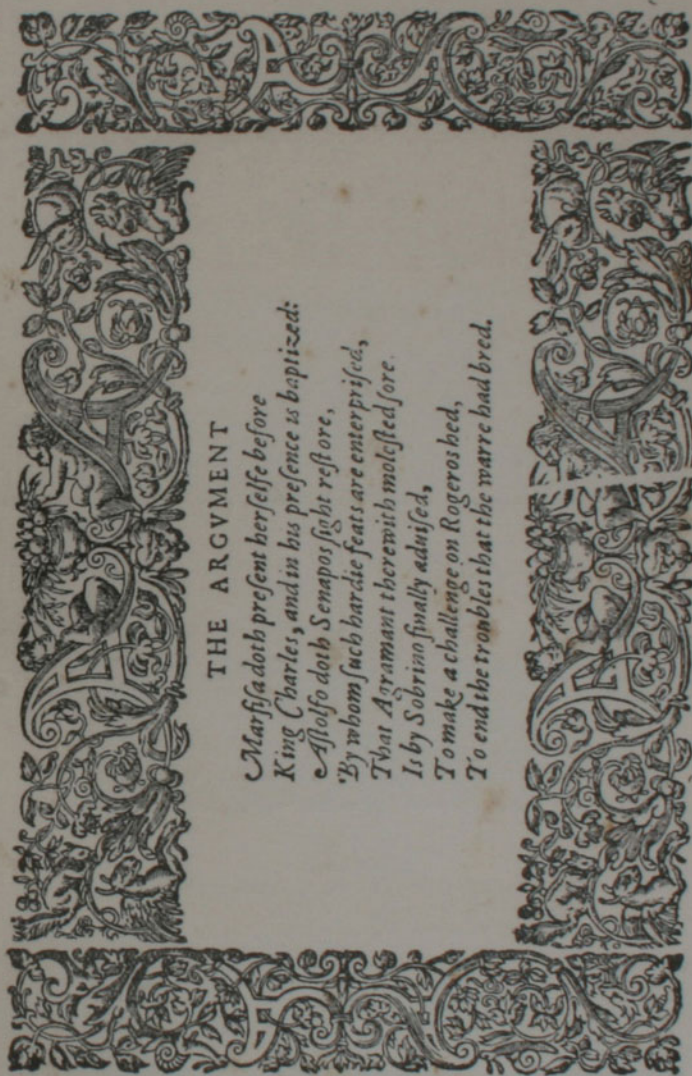 THE ARGVMENT
Marfisa doth present herselfe before
King Charles, and in his presence is baptized:
Astolfo doth Senapos sight restore,
By whom such hardie feats are enterprised,
That Agramant therewith molested sore.
Is by Sobrino finally aduised,
To make a challenge on Rogeros hed,
To end the troubles that the warre had bred.